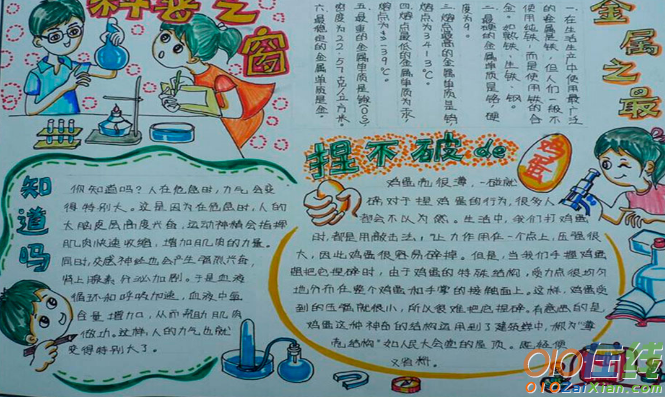 科学之窗
金属之最
一.在生活生产中使用最广泛
的金属是铁,但人们一般不
使用纯铁,而是使用铁的合
金。如熟铁、生铁、钢
二.最硬的金属单质是铬,硬
度为9。
三.熔点最高的金属单质是钨,
熔点为3413℃
四.熔点最低的金属单质为汞,
熔点为-39℃
五.最重的金属单质是锇(Os)
密度为22.57克/立方米。
六.最
的金属单质是金
知道吗
你知道吗?人在危急时,力气会变
得特别大。这是因为在危急时,人的
大脑皮层高度兴奋,运动神经会指挥
肌肉快速收缩,增加肌肉的力量。
同时,交感神经也会产生强烈兴奋,
肾上腺素分泌加剧。于是血液
循环和呼吸加速,血液中氧
含量增加,从而帮助肌肉
做功。这样,人的力气也就
变得特别大了。
捏不破de鸡蛋
鸡蛋壳很薄,一碰就
碎,对于捏鸡蛋的行为,很多人
都会不以为然。生活中,我们打鸡蛋
时,都是用敲击法,让力作用在一个点上,压强很
大,因此鸡蛋很容易碎掉。但是,当我们手握鸡蛋
想把它捏碎时,由于鸡蛋的特殊结构,受力点很均匀
地分布在整个鸡蛋和手掌的接触面上。这样,鸡蛋受
到的压强就很小,所以很难把它捏碎。有意思的是,
鸡蛋这种神奇的结构运用到了建筑业中,称为"薄
壳结构"。如人民大会堂的屋顶。既轻便
又省料。
010在线
010zaixian.com